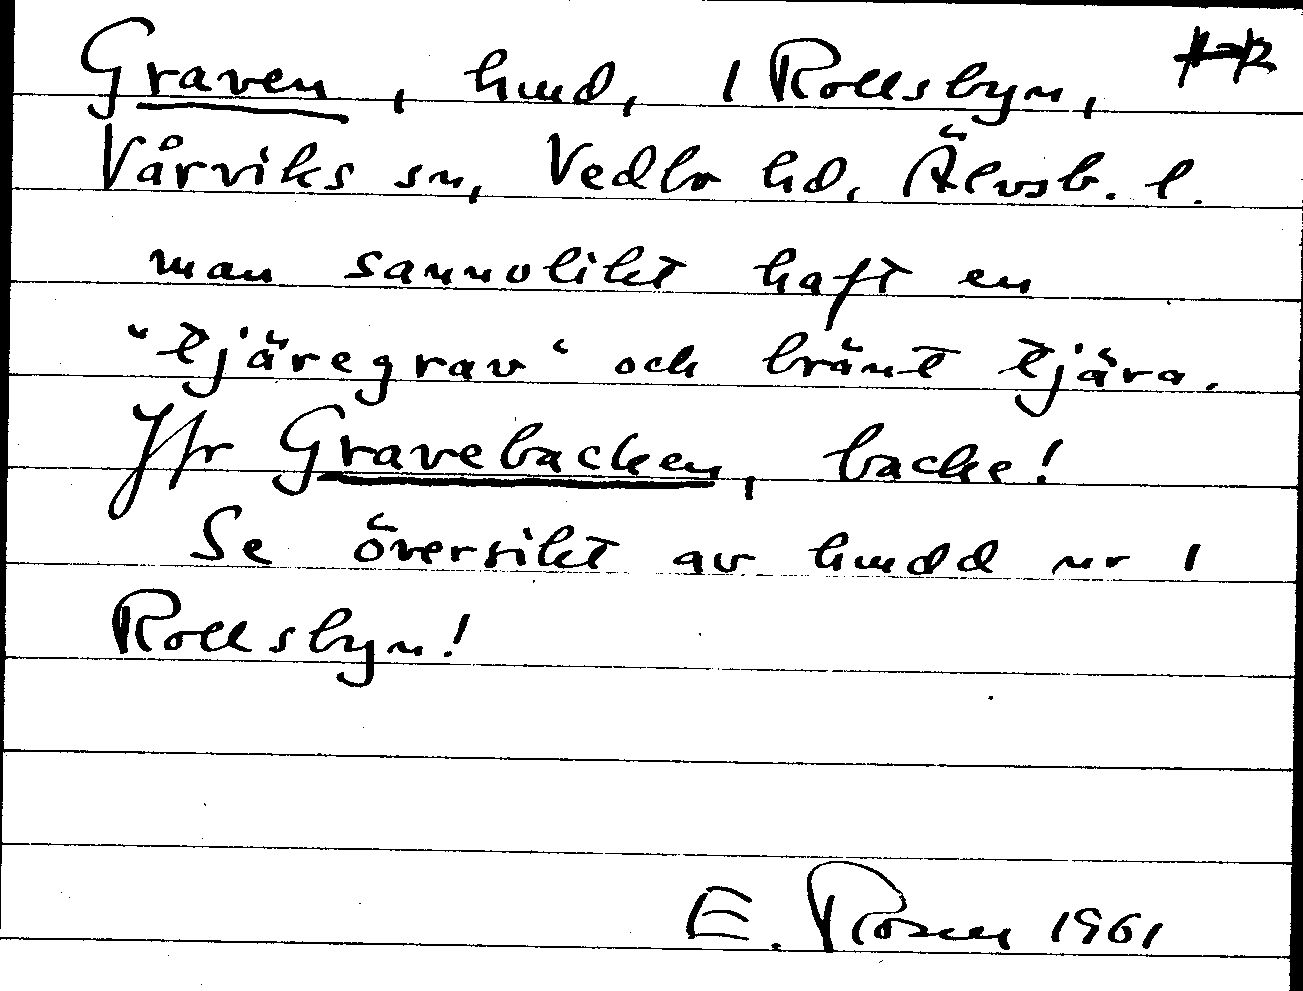 Graven, hmd, 1 Rollsbyn,
Vårviks sn, Vedbo hd, Älvsb. l.
man sannolikt haft en
"tjäregrav" och bränt tjära.
Jfr Gravebacken, backe!
Se översikt av hmdd nr 1
Rollsbyn!
E. Rosen 1961